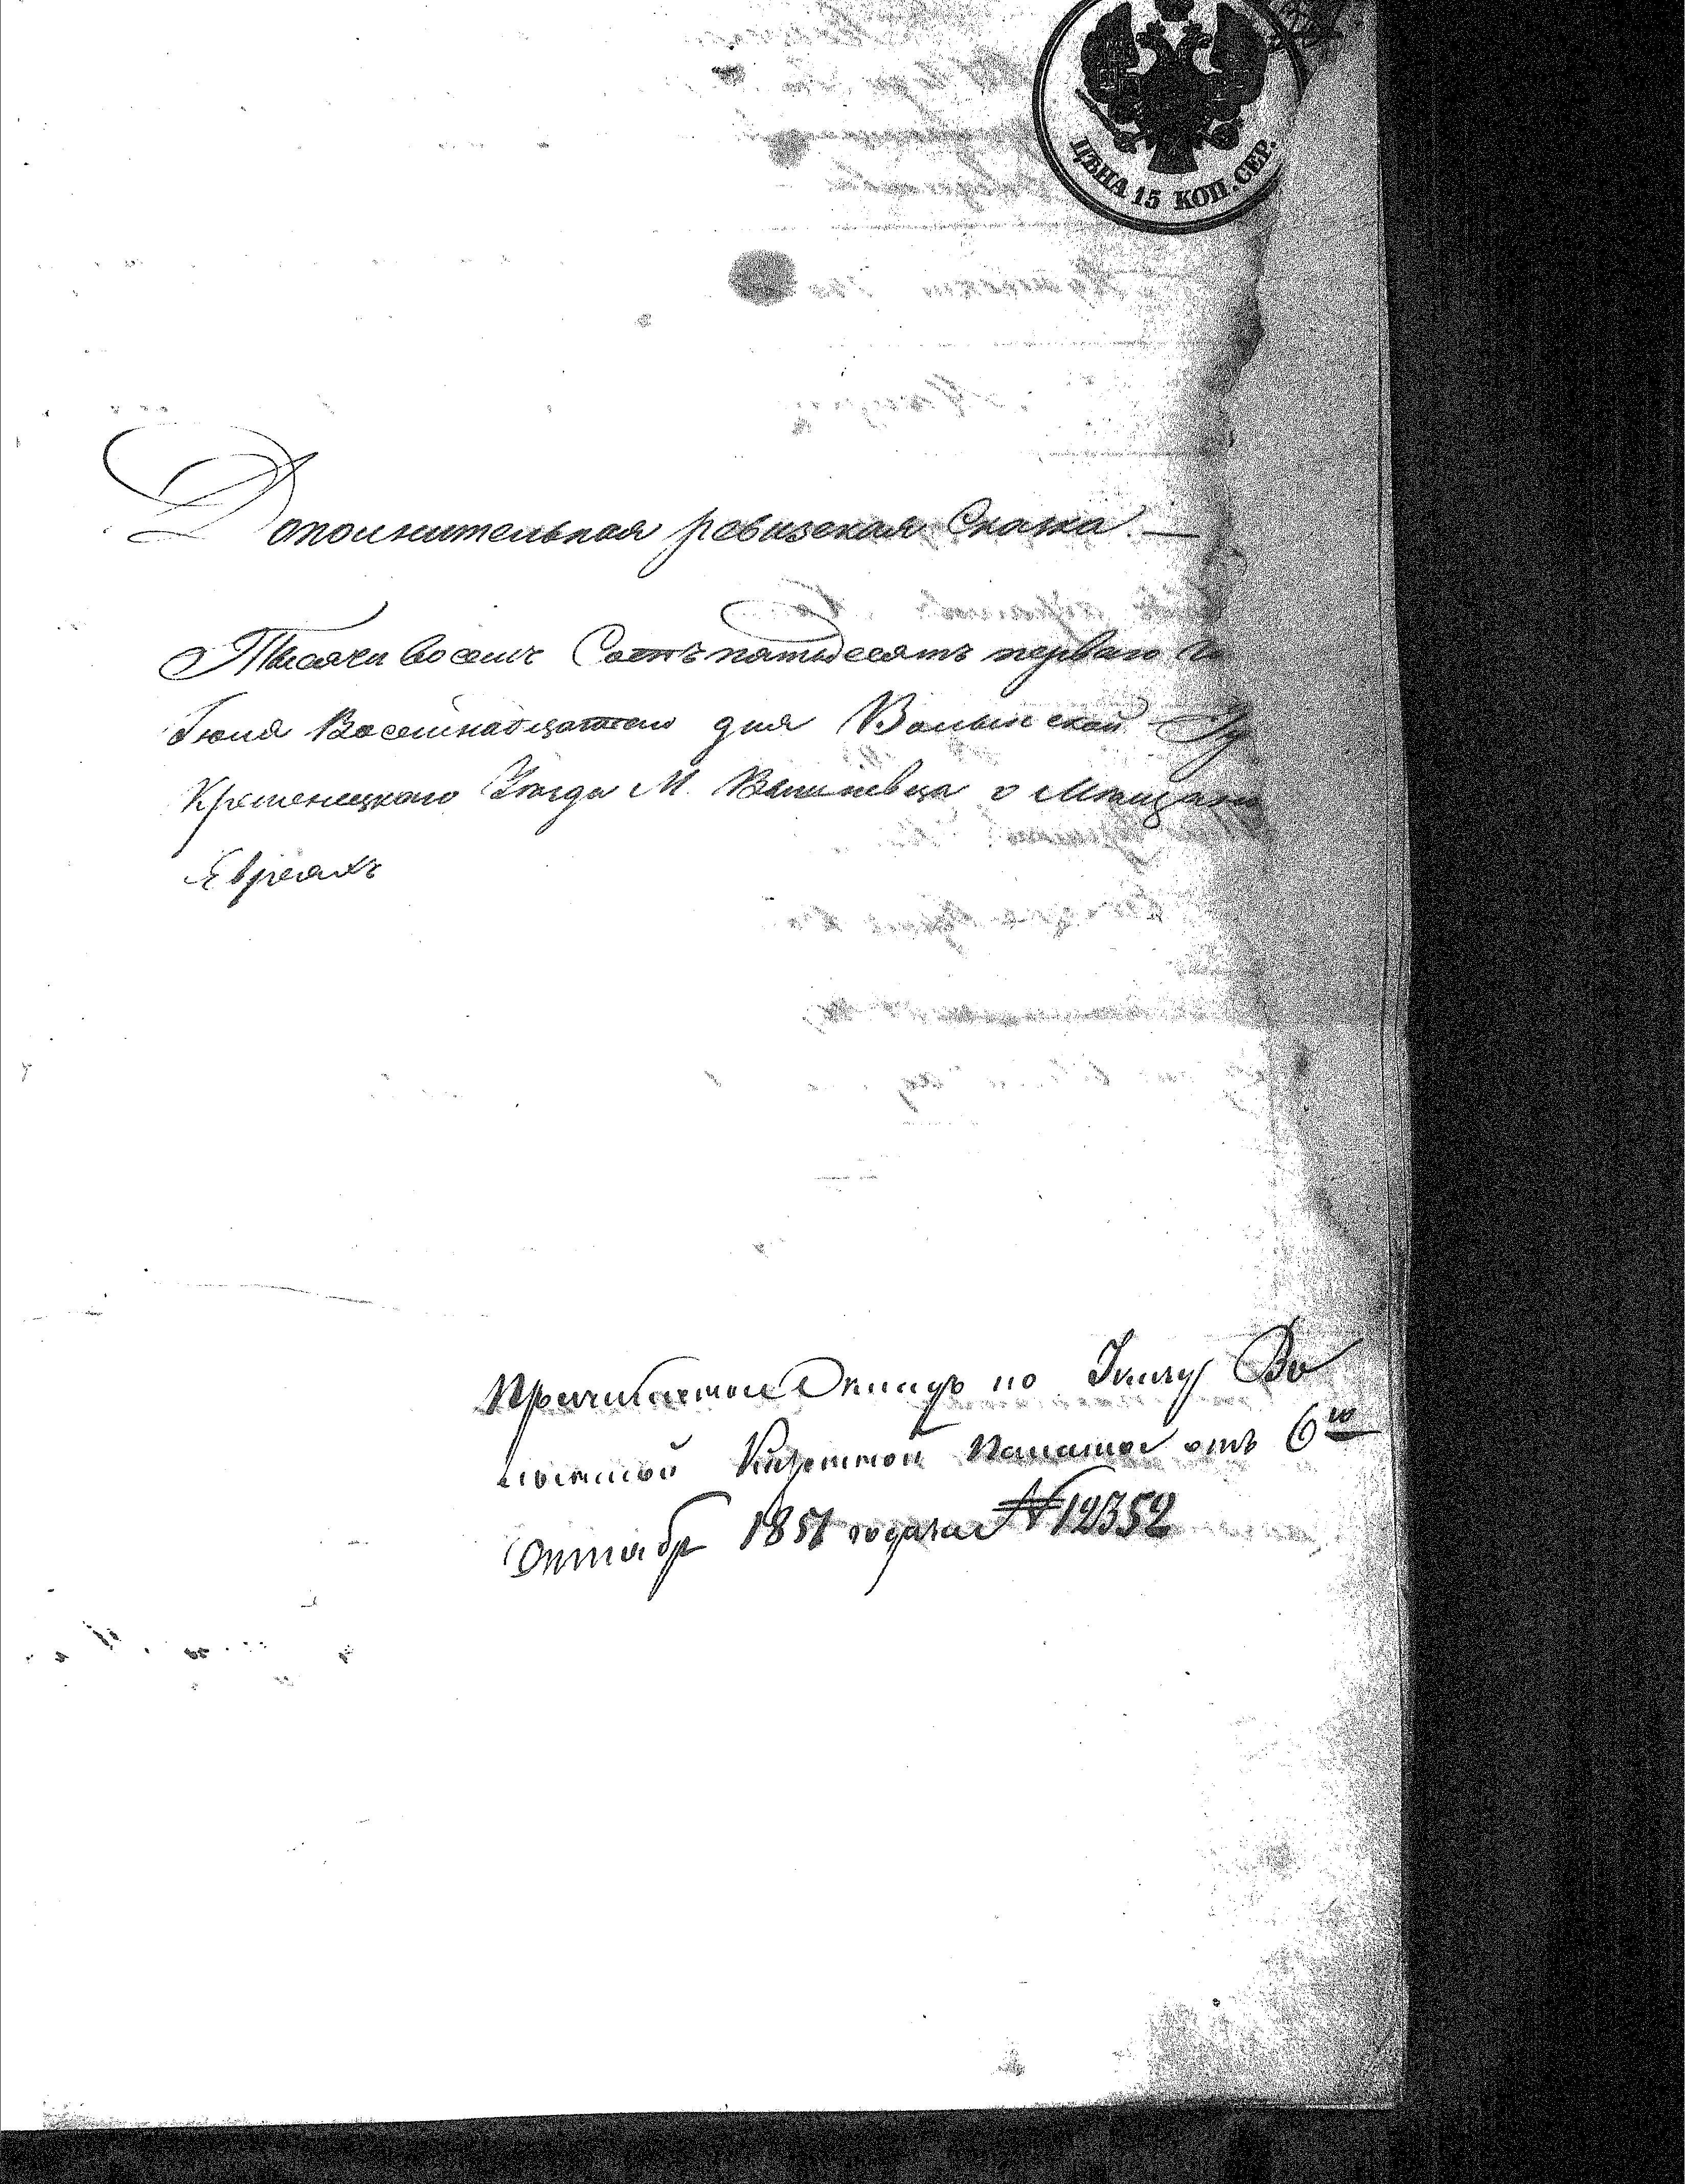 ЦѢНА 15 КОП. СЕР.
Дополнительная ревизская Сказка. —
Тысяча восемь Сотъ пятьдесятъ перваго го
Іюля Восемнадцатаго дня Волынской Гу
Кременецкаго Уѣзда М. Вышневца о Мѣщанa
Евреяхъ
по Указу Во
лынской Казенной Палаты отъ 6го
Октябр 1851 года за № 12352